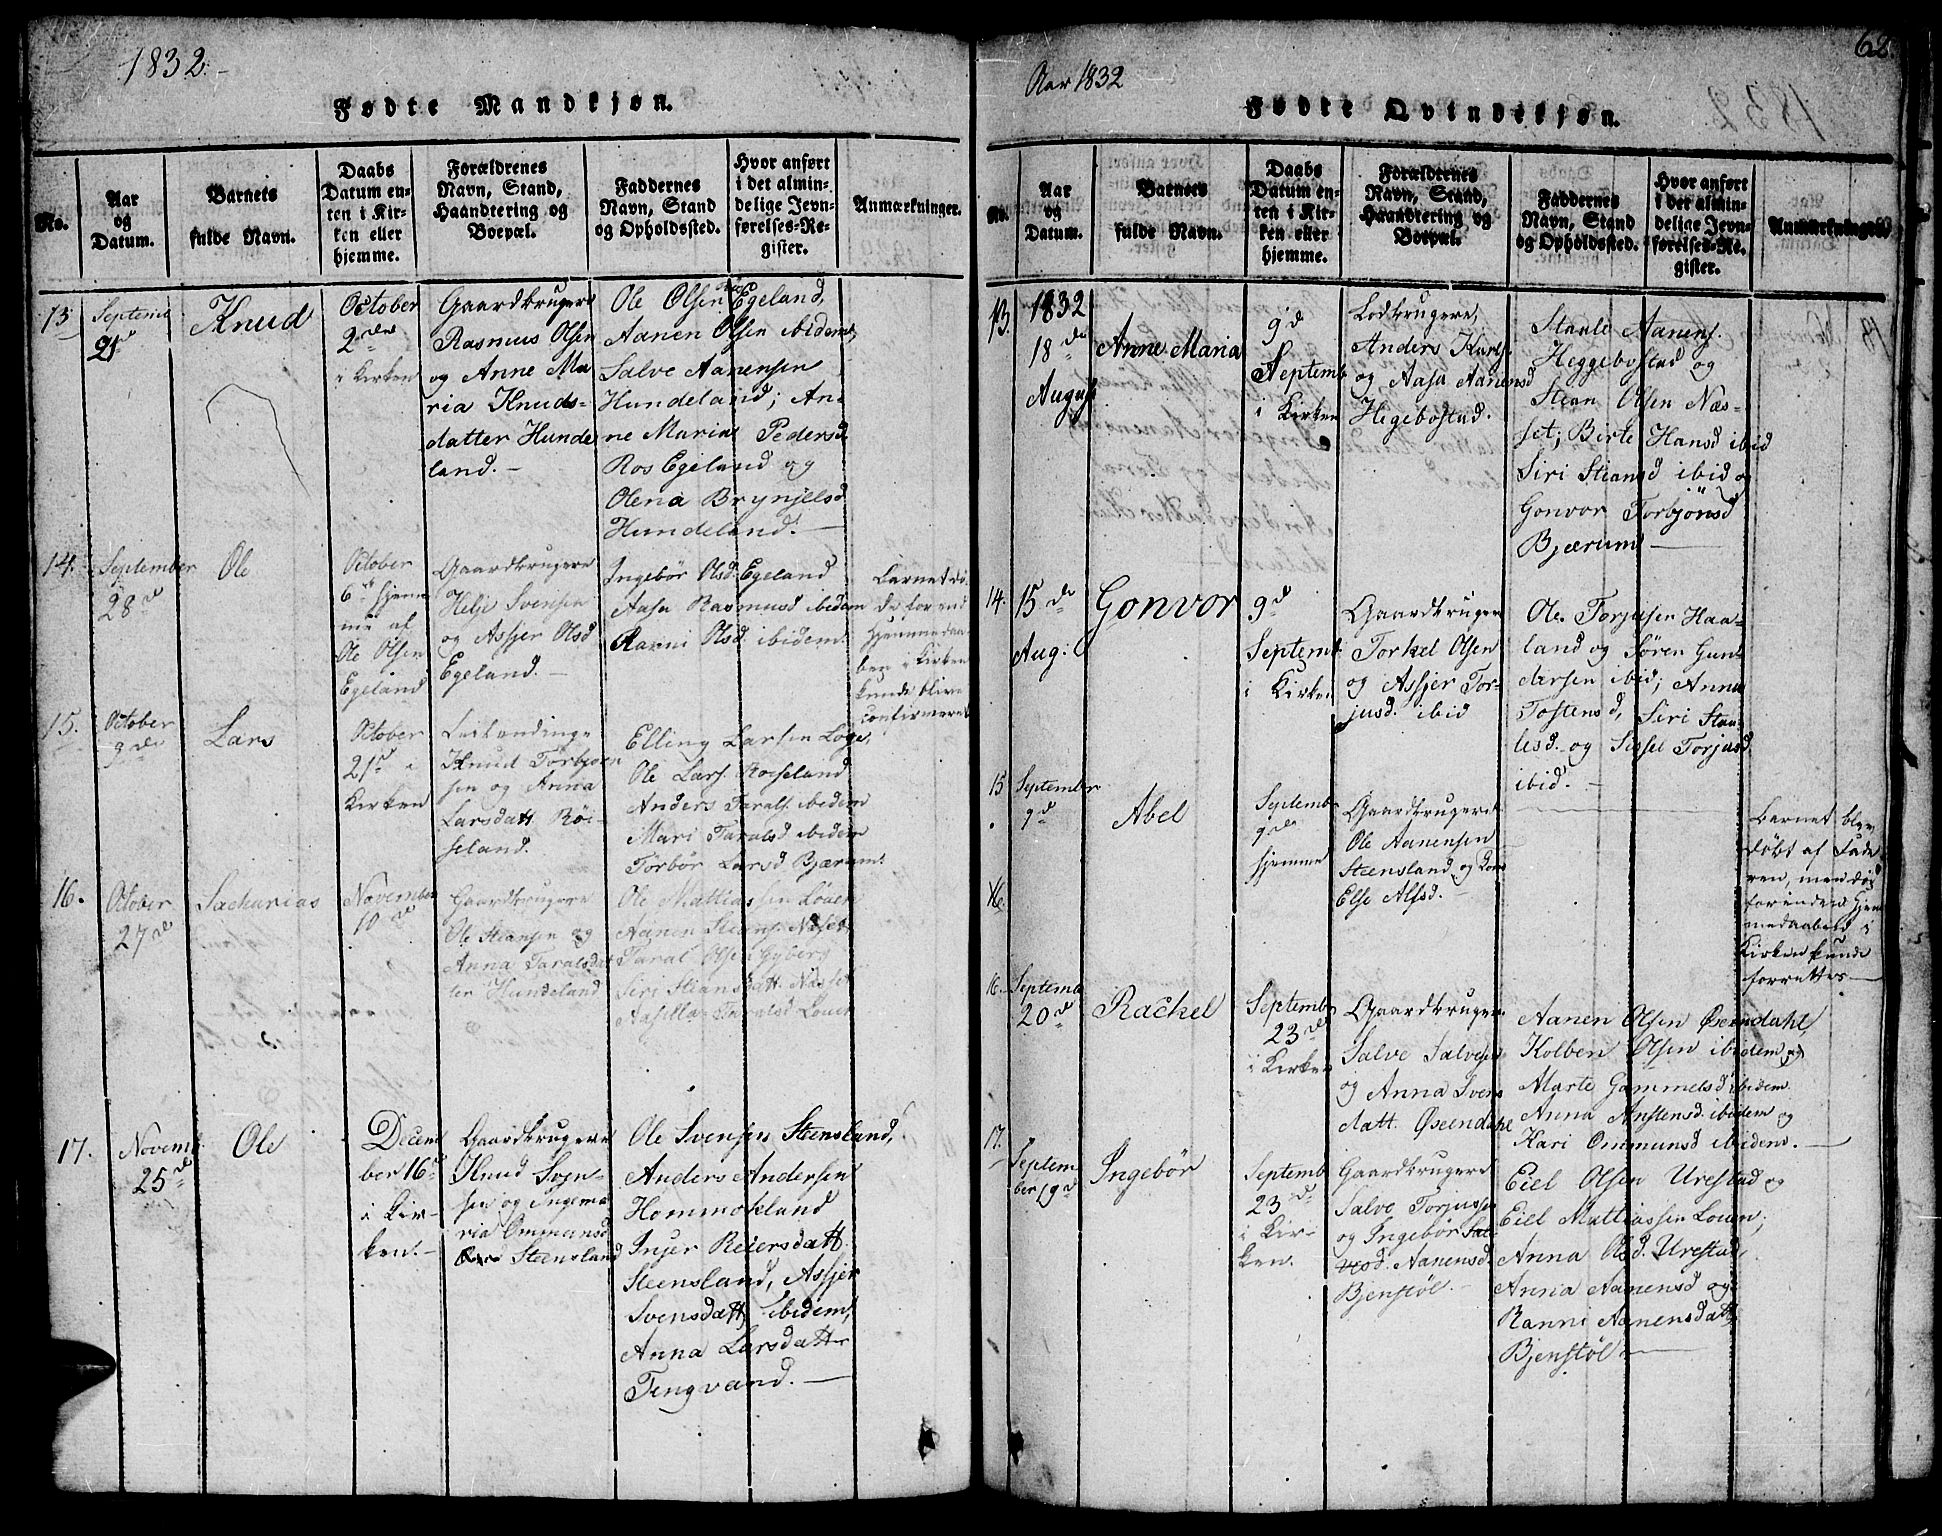 1832.
Fødte Mandkjøn.
No.
Aar
og
Datum.
Barnets
fulde Navn.
Daabs
Datum en-
ten i Kir-
ken eller
hjemme.
Forældrenes
Navn, Stand,
Haandtering og
Boepæl.
Faddernes
Navn, Stand
og Opholdssted.
Hvor anført
i det almin-
delige Jevn-
førelses-Re-
gister.
Anmærkninger.
13
Septemb
21
Knud
October
2den
i Kirken
Gaardbrugere
Rasmus Olsen
og Anne Ma
ria Knuds-
datter Hunde
land. –
Ole Olsen Egeland,
Aanen Olsen ibidem,
Salve Aanensen
Hundeland; An
ne Maria Pedersd
Ros Egeland og
Olena Brynjelsd
Hundeland. –
14.
September
28d
Ole
October
6d hjem
me af
Ole Olsen
Egeland
Gaardbrugere
Helje Svensen
og Assjer Olsd
Egeland. –
Ingebör Olsd. Egeland
Aasa Rasmusd ibidem
Ranni Olsd. ibidem.
Barnet dö
de forend
Hjemmedaa-
ben i Kirken
kunde blive
confirmeret
15.
October
9de
Lars
October
21d i
Kirken
Knud Torbjorn
sen og Anna
Larsdatt Röi-
seland.
Elling Larsen Loge,
Ole Lars. Roiseland
Anders Taralf. ibidem
Mari Taralsd ibidem
Torbör Larsd Bjærum.
16.
October
27de
Sacharias
November
10de
Gaardbrugere
Ole Steansen og
Anna Taralsdat
ter Hundeland
Ole Mattiassen Löuen
Aanen Steans. Næset
Taral Olsen Gyberg
Siri Steansdatt. Næsset
Aasille Taralsd Louen
17.
Novem
25d
Ole
Decem
ber 16d
i Kir-
ken. –
Gaardbrugere
Knud Sogn-
sen og Ingema
ria Ommunsd
Steensland
Ole Svensen Steensland,
Anders Andersen
Hommokland
Injer Reiersdatt.
Steensland, Assjer
Svensdatt, ibidem,
Anna Larsdatt
Tengvand. –
62
Aar 1832
Fødte Qvindekjøn.
No.
Aar
og
Datum.
Barnets
fulde Navn.
Daabs
Datum en-
ten i Kir-
ken eller
hjemme.
Forældrenes
Navn, Stand,
Haandtering og
Boepæl.
Faddernes
Navn, Stand
og Opholdssted.
Hvor anført
i det almin-
delige Jevn-
førelses-Re-
gister.
Anmærkninger.
13.
1832
18de
August
Anne Maria
9d
Septemb
i Kirken
Lodbrugere,
Anders Karls.
og Aasa Aanensd
Hegebostad.
Staale Aanens.
Heggebostad og
Stean Olsen Næs-
set; Birte Hansd ibid
Siri Steansd ibid og
Gonvor Torbjönsd
Bjærum –
14.
15de
Aug:
Gonvor
9d
Septemb.
i Kirken
Gaardbrugere
Torkel Olsen
og Assjer Tor-
jusd. ibid
Ole Torjusen Haa-
land og Sören Gun-
dersen ibid; Anna
Tostensd, Siri Staa-
lesd. og Sissel Torjusd
ibid. –
15
September
9d
Abel
Septemb
9de
hjemme
Gaardbrugere
Ole Aanensen
Steensland og Kone
Else Alfsd. –
Barnet blev
döbt af Fade
ren, men död
forenden Hjem
medaabed i
Kirken kunde
forrettes –
16.
16.
Septemb
20d
Rachel
Septemb
23de
i Kirken
Gaardbruger
Salve Salvesen
og Anna Svens
datt. Öseendahl
Aanen Olsen Öseendahl,
Kolben Olsen ibidem og
Marte Gammelsd ibidem
Anna Anstensd. ibidem og
Kari Ommunsd ibidem. –
17.
Septem
ber 9d
Ingebör
Septemb
23de
i Kir-
ken.
Gaardbrugere
Salve Torjussen
og Ingebör Sal-
vesd. Aanensd.
Bjenstöl. –
Eiel Olsen Urestad og
Eiel Mattiassen Louen;
Anna Olsd. Urestad,
Anna Aanensd og
Ranni Aanensdatt
Bjenstöl –